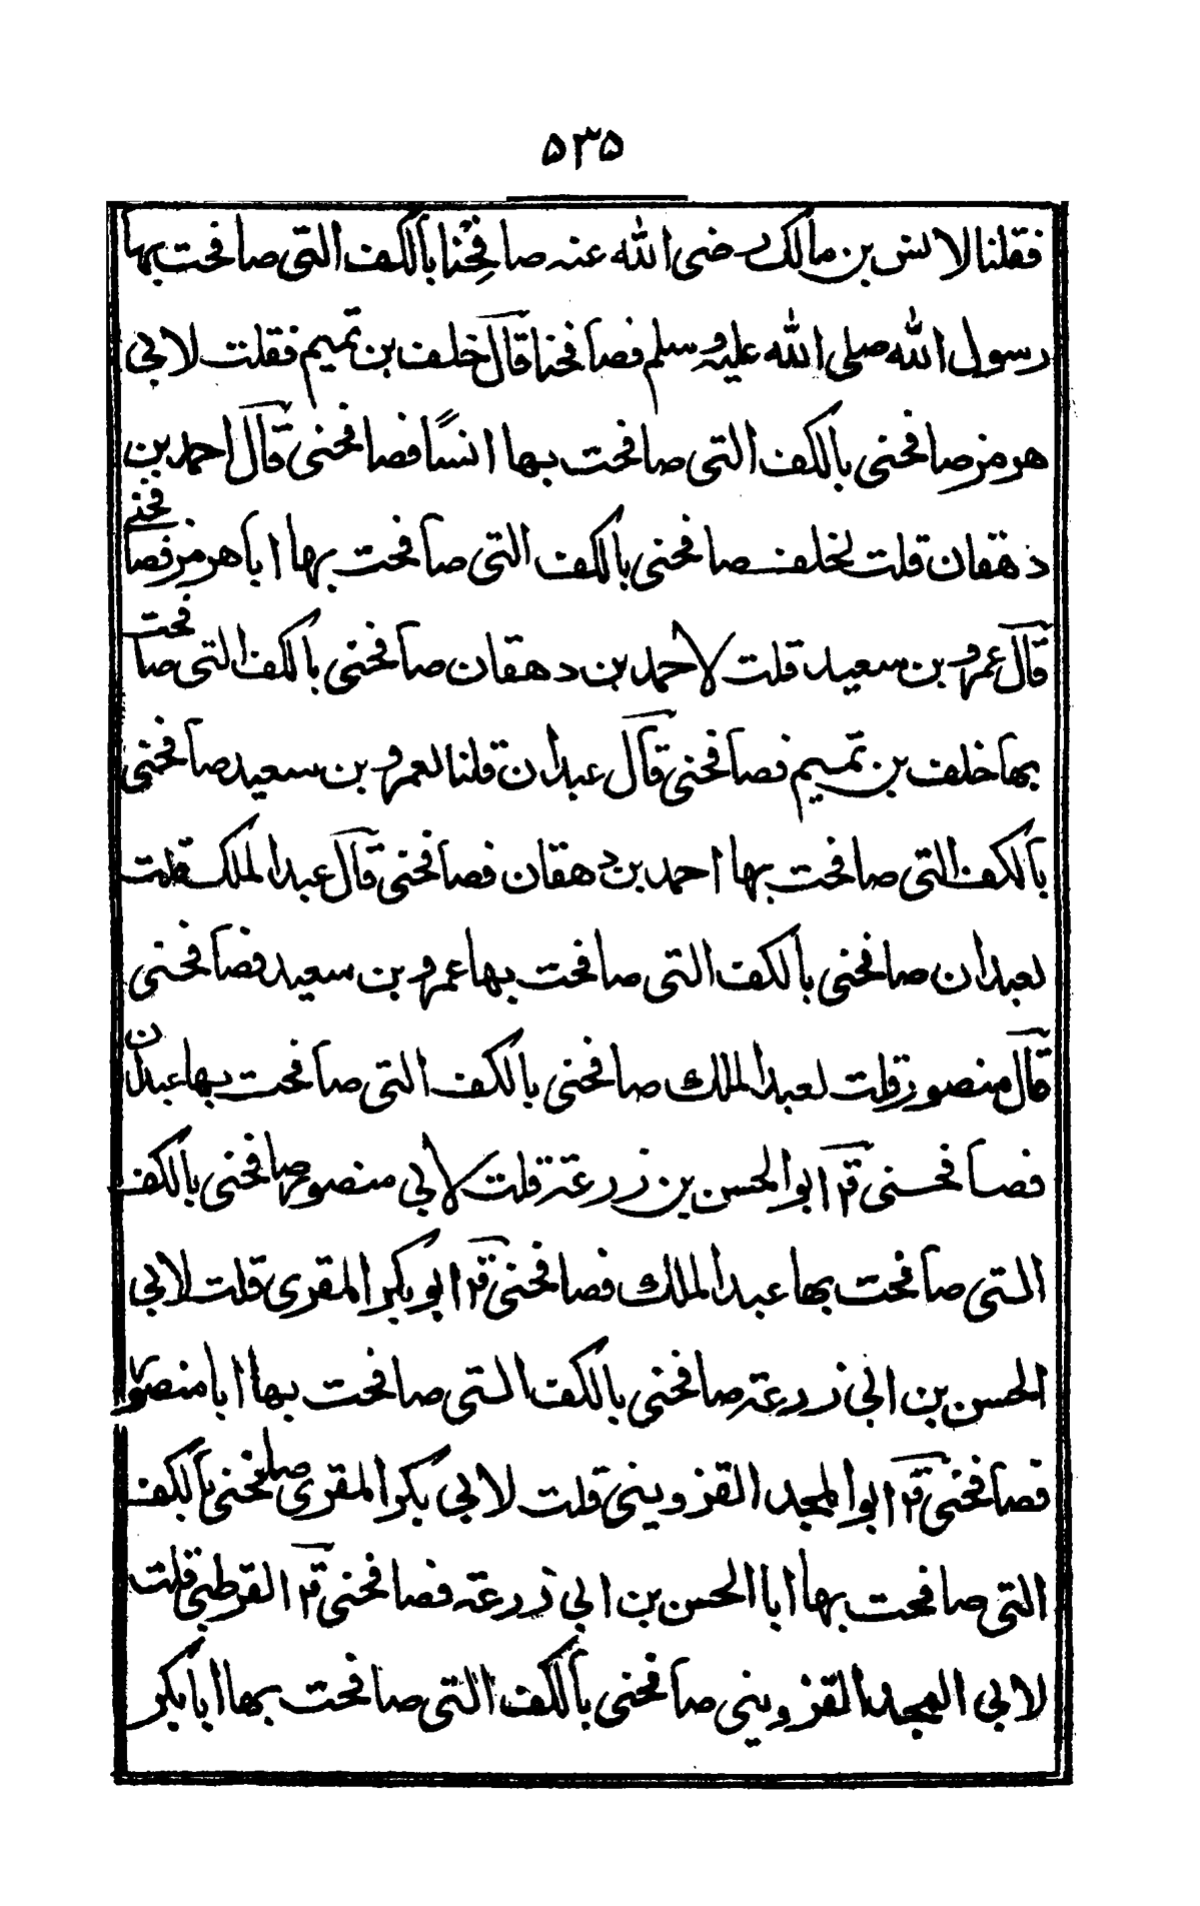 ۵۳۵
فقلنا لانس بن مالك رضی الله عنہ صافحْنا بالكف التی صافحت بها
رسول الله صلی الله علیہ وسلم فصافحنا قال خلف بن تمیم فقلت لابی
هرمز صافحنی بالكف التی صافحت بها انسًا فصافحنی قال احمد بن
دهقان قلت لخلف صافحنی بالكف التی صافحت بها اباهرمز فصافحنی
قال عمرو بن سعید قلت لاحمد بن دهقان صافحنی بالكف التی صافحت
بها خلف بن تمیم فصافحنی قال عبدان قلنا لعمرو بن سعید صافحنی
بالكف التی صافحت بها احمد بن دهقان فصافحنی قال عبد الملك قلت
لعبدان صافحنی بالكف التی صافحت بها عمرو بن سعید فصافحنی
قال منصور قلت لعبد الملك صافحنی بالكف التی صافحت بها عبدان
فصافحنی قر ابو الحسن بن زرعة قلت لابی منصور صافحنی بالكف
التی صافحت بها عبد الملك فصافحنی قر ابو بكر المقری قلت لابی
الحسن بن ابی زرعة صافحنی بالكف التی صافحت بها ابا منصور
فصافحنی قر ابو المجد القزوینی قلت لابی بكر المقری صافحنی بالكف
التی صافحت بها ابا الحسن بن ابی زرعة فصافحنی قر القرطبی قلت
لابی المجد القزوینی صافحنی بالكف التی صافحت بها ابا بكر